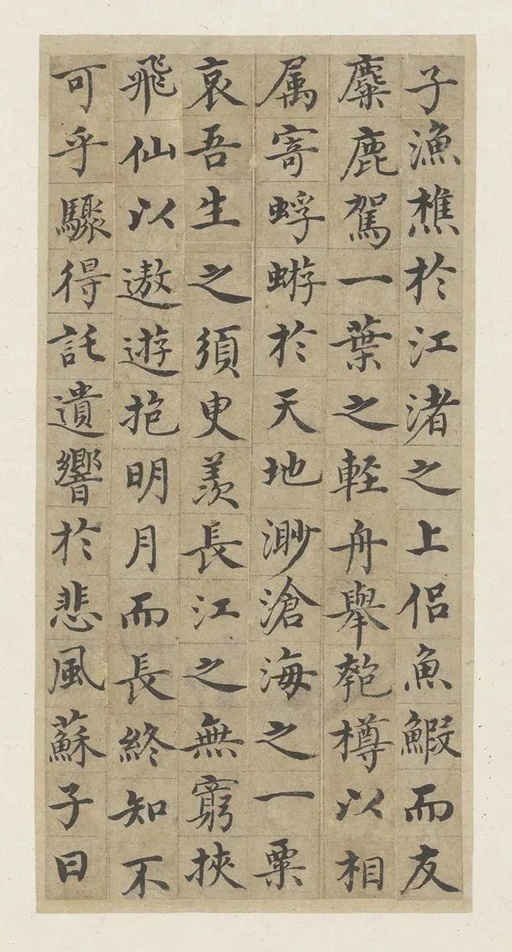 子漁樵於江渚之上侣魚鰕而友
麋鹿駕一葉之輕舟舉匏樽以相
属寄蜉蝣於天地渺滄海之一粟
哀吾生之須臾羨長江之無窮挾
飛仙以遨遊抱明月而長終知不
可乎驟得託遺響於悲風蘇子曰